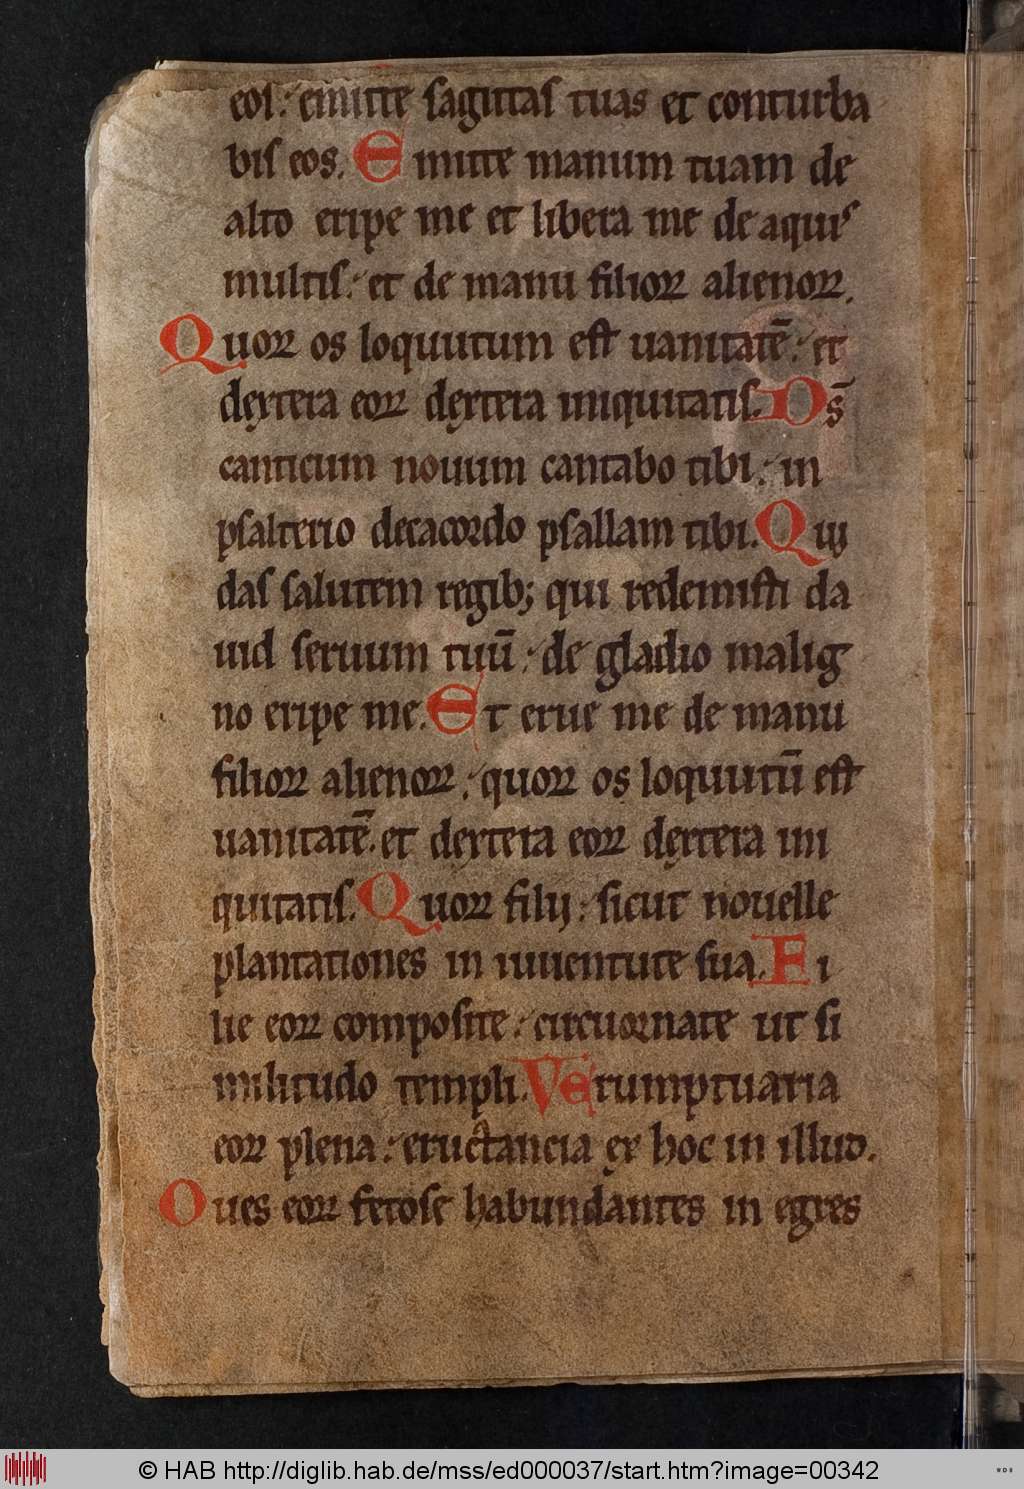 eos : emitte sagittas tuas et conturba
bis eos. Emitte manum tuam de
alto eripe me et libera me de aquis
multis : et de manu filioꝝ alienoꝝ.
Quoꝝ os loquutum est uanitatē : et
dextera eoꝝ dextera iniquitatis. Ds̄
canticum nouum cantabo tibi : in
psalterio decacordo psallam tibi. Qui
das salutem regib; qui redemisti da
uid seruum tuū : de gladio malig
no eripe me. Et erue me de manu
filioꝝ alienoꝝ : quoꝝ os loquutū est
uanitatē. et dextera eoꝝ dextera ini
quitatis. Quoꝝ filij : sicut nouelle
plantationes in iuuentute sua. Fi
lie eoꝝ composite : circuornate ut si
militudo templi. Verumptuaria
eoꝝ plena : eructancia ex hoc in illud.
Oues eoꝝ fetose habundantes in egres
© HAB http://diglib.hab.de/mss/ed000037/start.htm?image=00342